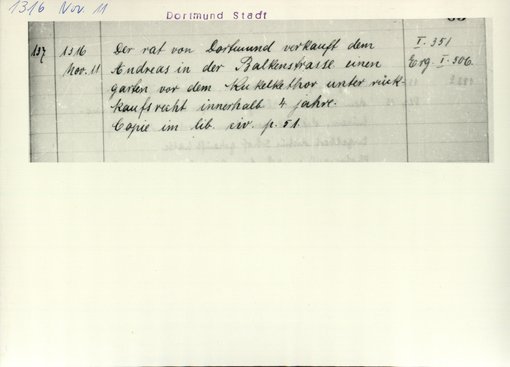 1316 Nov. 11
Dortmund Stadt
137 1316 Der rat von Dortmund verkauft dem I. 351
Nov. 11 Andreas in der Balkenstrasse einen Erg. I. 306.
garten vor dem Kukelkethor unter rück-
kaufsrecht innerhalb 4 jahre.
Copie im lib. civ. p. 51.